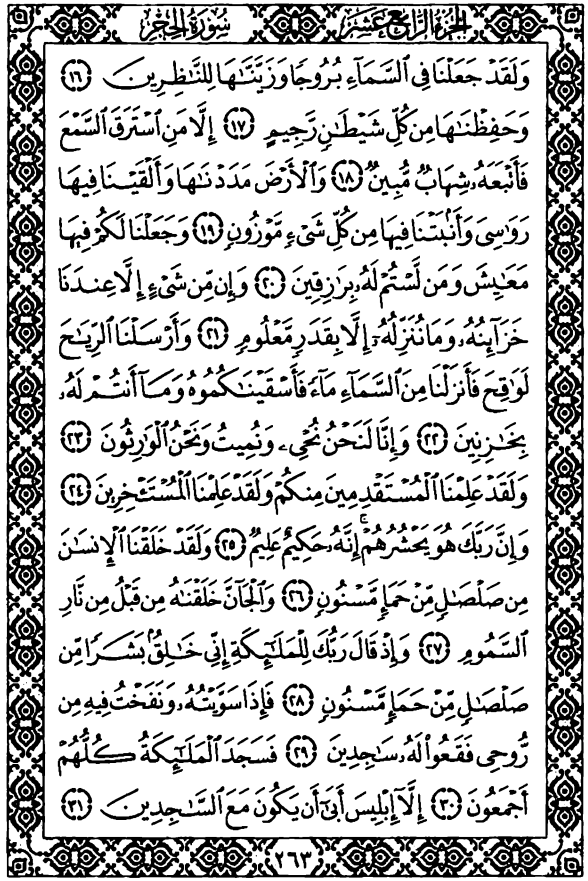 الجزء الرابع عشر سورة الحجر
وَلَقَدْ جَعَلْنَا فِي ٱلسَّمَآءِ بُرُوجًا وَزَيَّنَّٰهَا لِلنَّٰظِرِينَ ١٦
وَحَفِظْنَٰهَا مِن كُلِّ شَيْطَٰنٍ رَّجِيمٍ ١٧ إِلَّا مَنِ ٱسْتَرَقَ ٱلسَّمْعَ
فَأَتْبَعَهُۥ شِهَابٌ مُّبِينٌ ١٨ وَٱلْأَرْضَ مَدَدْنَٰهَا وَأَلْقَيْنَا فِيهَا
رَوَٰسِيَ وَأَنۢبَتْنَا فِيهَا مِن كُلِّ شَيْءٍ مَّوْزُونٍ ١٩ وَجَعَلْنَا لَكُمْ فِيهَا
مَعَٰيِشَ وَمَن لَّسْتُمْ لَهُۥ بِرَٰزِقِينَ ٢٠ وَإِن مِّن شَيْءٍ إِلَّا عِندَنَا
خَزَآئِنُهُۥ وَمَا نُنَزِّلُهُۥٓ إِلَّا بِقَدَرٍ مَّعْلُومٍ ٢١ وَأَرْسَلْنَا ٱلرِّيَٰحَ
لَوَٰقِحَ فَأَنزَلْنَا مِنَ ٱلسَّمَآءِ مَآءً فَأَسْقَيْنَٰكُمُوهُ وَمَآ أَنتُمْ لَهُۥ
بِخَٰزِنِينَ ٢٢ وَإِنَّا لَنَحْنُ نُحْيِۦ وَنُمِيتُ وَنَحْنُ ٱلْوَٰرِثُونَ ٢٣
وَلَقَدْ عَلِمْنَا ٱلْمُسْتَقْدِمِينَ مِنكُمْ وَلَقَدْ عَلِمْنَا ٱلْمُسْتَـْٔخِرِينَ ٢٤
وَإِنَّ رَبَّكَ هُوَ يَحْشُرُهُمْ ۚ إِنَّهُۥ حَكِيمٌ عَلِيمٌ ٢٥ وَلَقَدْ خَلَقْنَا ٱلْإِنسَٰنَ
مِن صَلْصَٰلٍ مِّنْ حَمَإٍ مَّسْنُونٍ ٢٦ وَٱلْجَآنَّ خَلَقْنَٰهُ مِن قَبْلُ مِن نَّارِ
ٱلسَّمُومِ ٢٧ وَإِذْ قَالَ رَبُّكَ لِلْمَلَٰٓئِكَةِ إِنِّي خَٰلِقٌۢ بَشَرًا مِّن
صَلْصَٰلٍ مِّنْ حَمَإٍ مَّسْنُونٍ ٢٨ فَإِذَا سَوَّيْتُهُۥ وَنَفَخْتُ فِيهِ مِن
رُّوحِي فَقَعُوا۟ لَهُۥ سَٰجِدِينَ ٢٩ فَسَجَدَ ٱلْمَلَٰٓئِكَةُ كُلُّهُمْ
أَجْمَعُونَ ٣٠ إِلَّآ إِبْلِيسَ أَبَىٰٓ أَن يَكُونَ مَعَ ٱلسَّٰجِدِينَ ٣١
٢٦٣